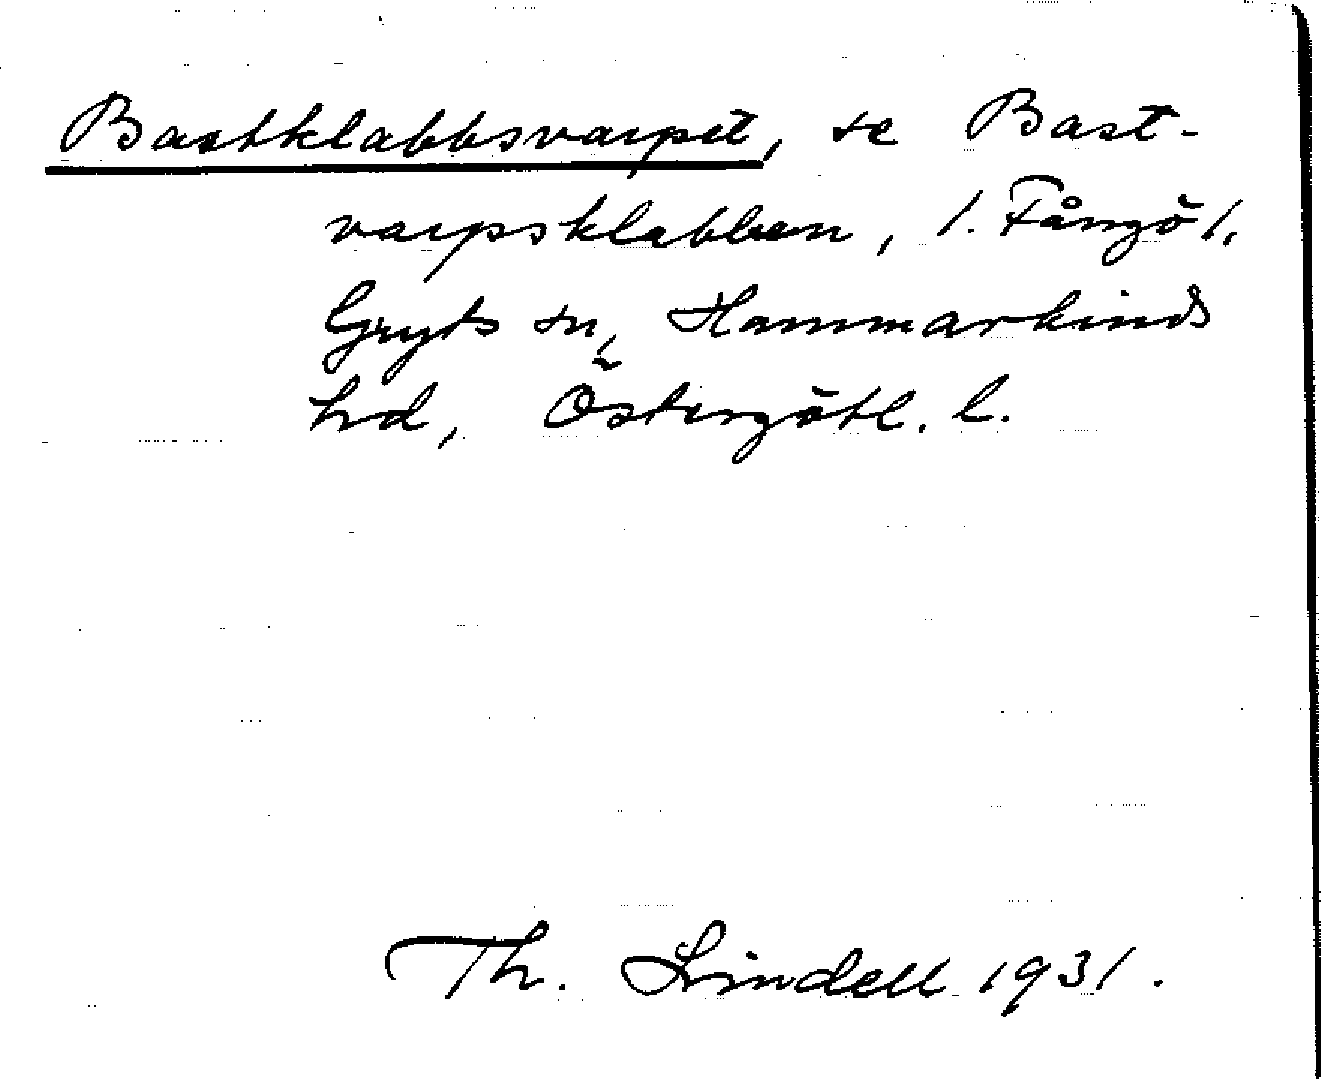 Bastklabbsvarpet, se Bast-
varpsklabben, 1. Fångö 1,
Gryts sn, Hammarkinds
hd, Östergötl. l.
Th. Lindell 1931.